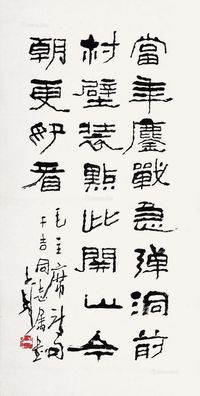 當年鏖戰急彈洞前
村壁裝點此關山今
朝更好看
毛主席詩句
吉同志屬